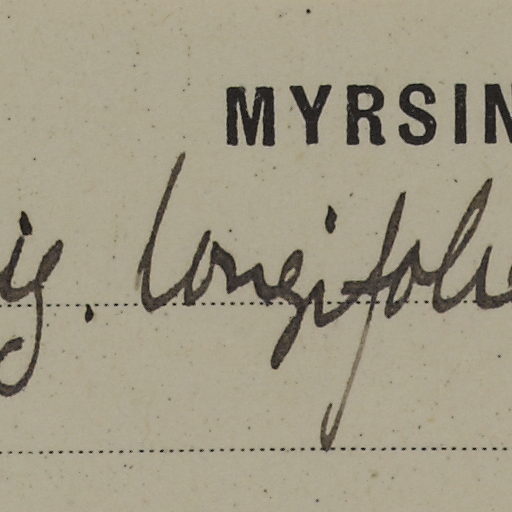 MYRSIN
ig. longifolia